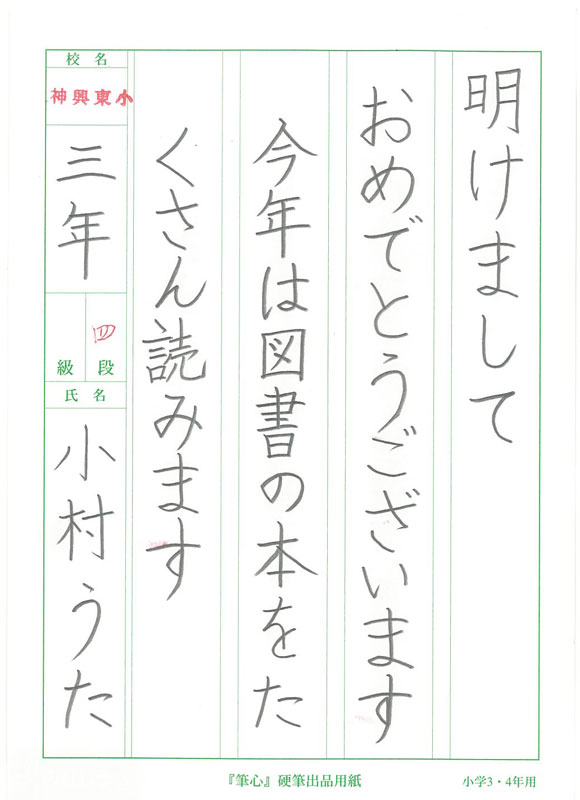 明けまして
おめでとうございます
今年は図書の本をた
くさん読みます
校名
神興東小
三年
四段
級
氏名
小村うた
『筆心』硬筆出品用紙
小学3・4年用